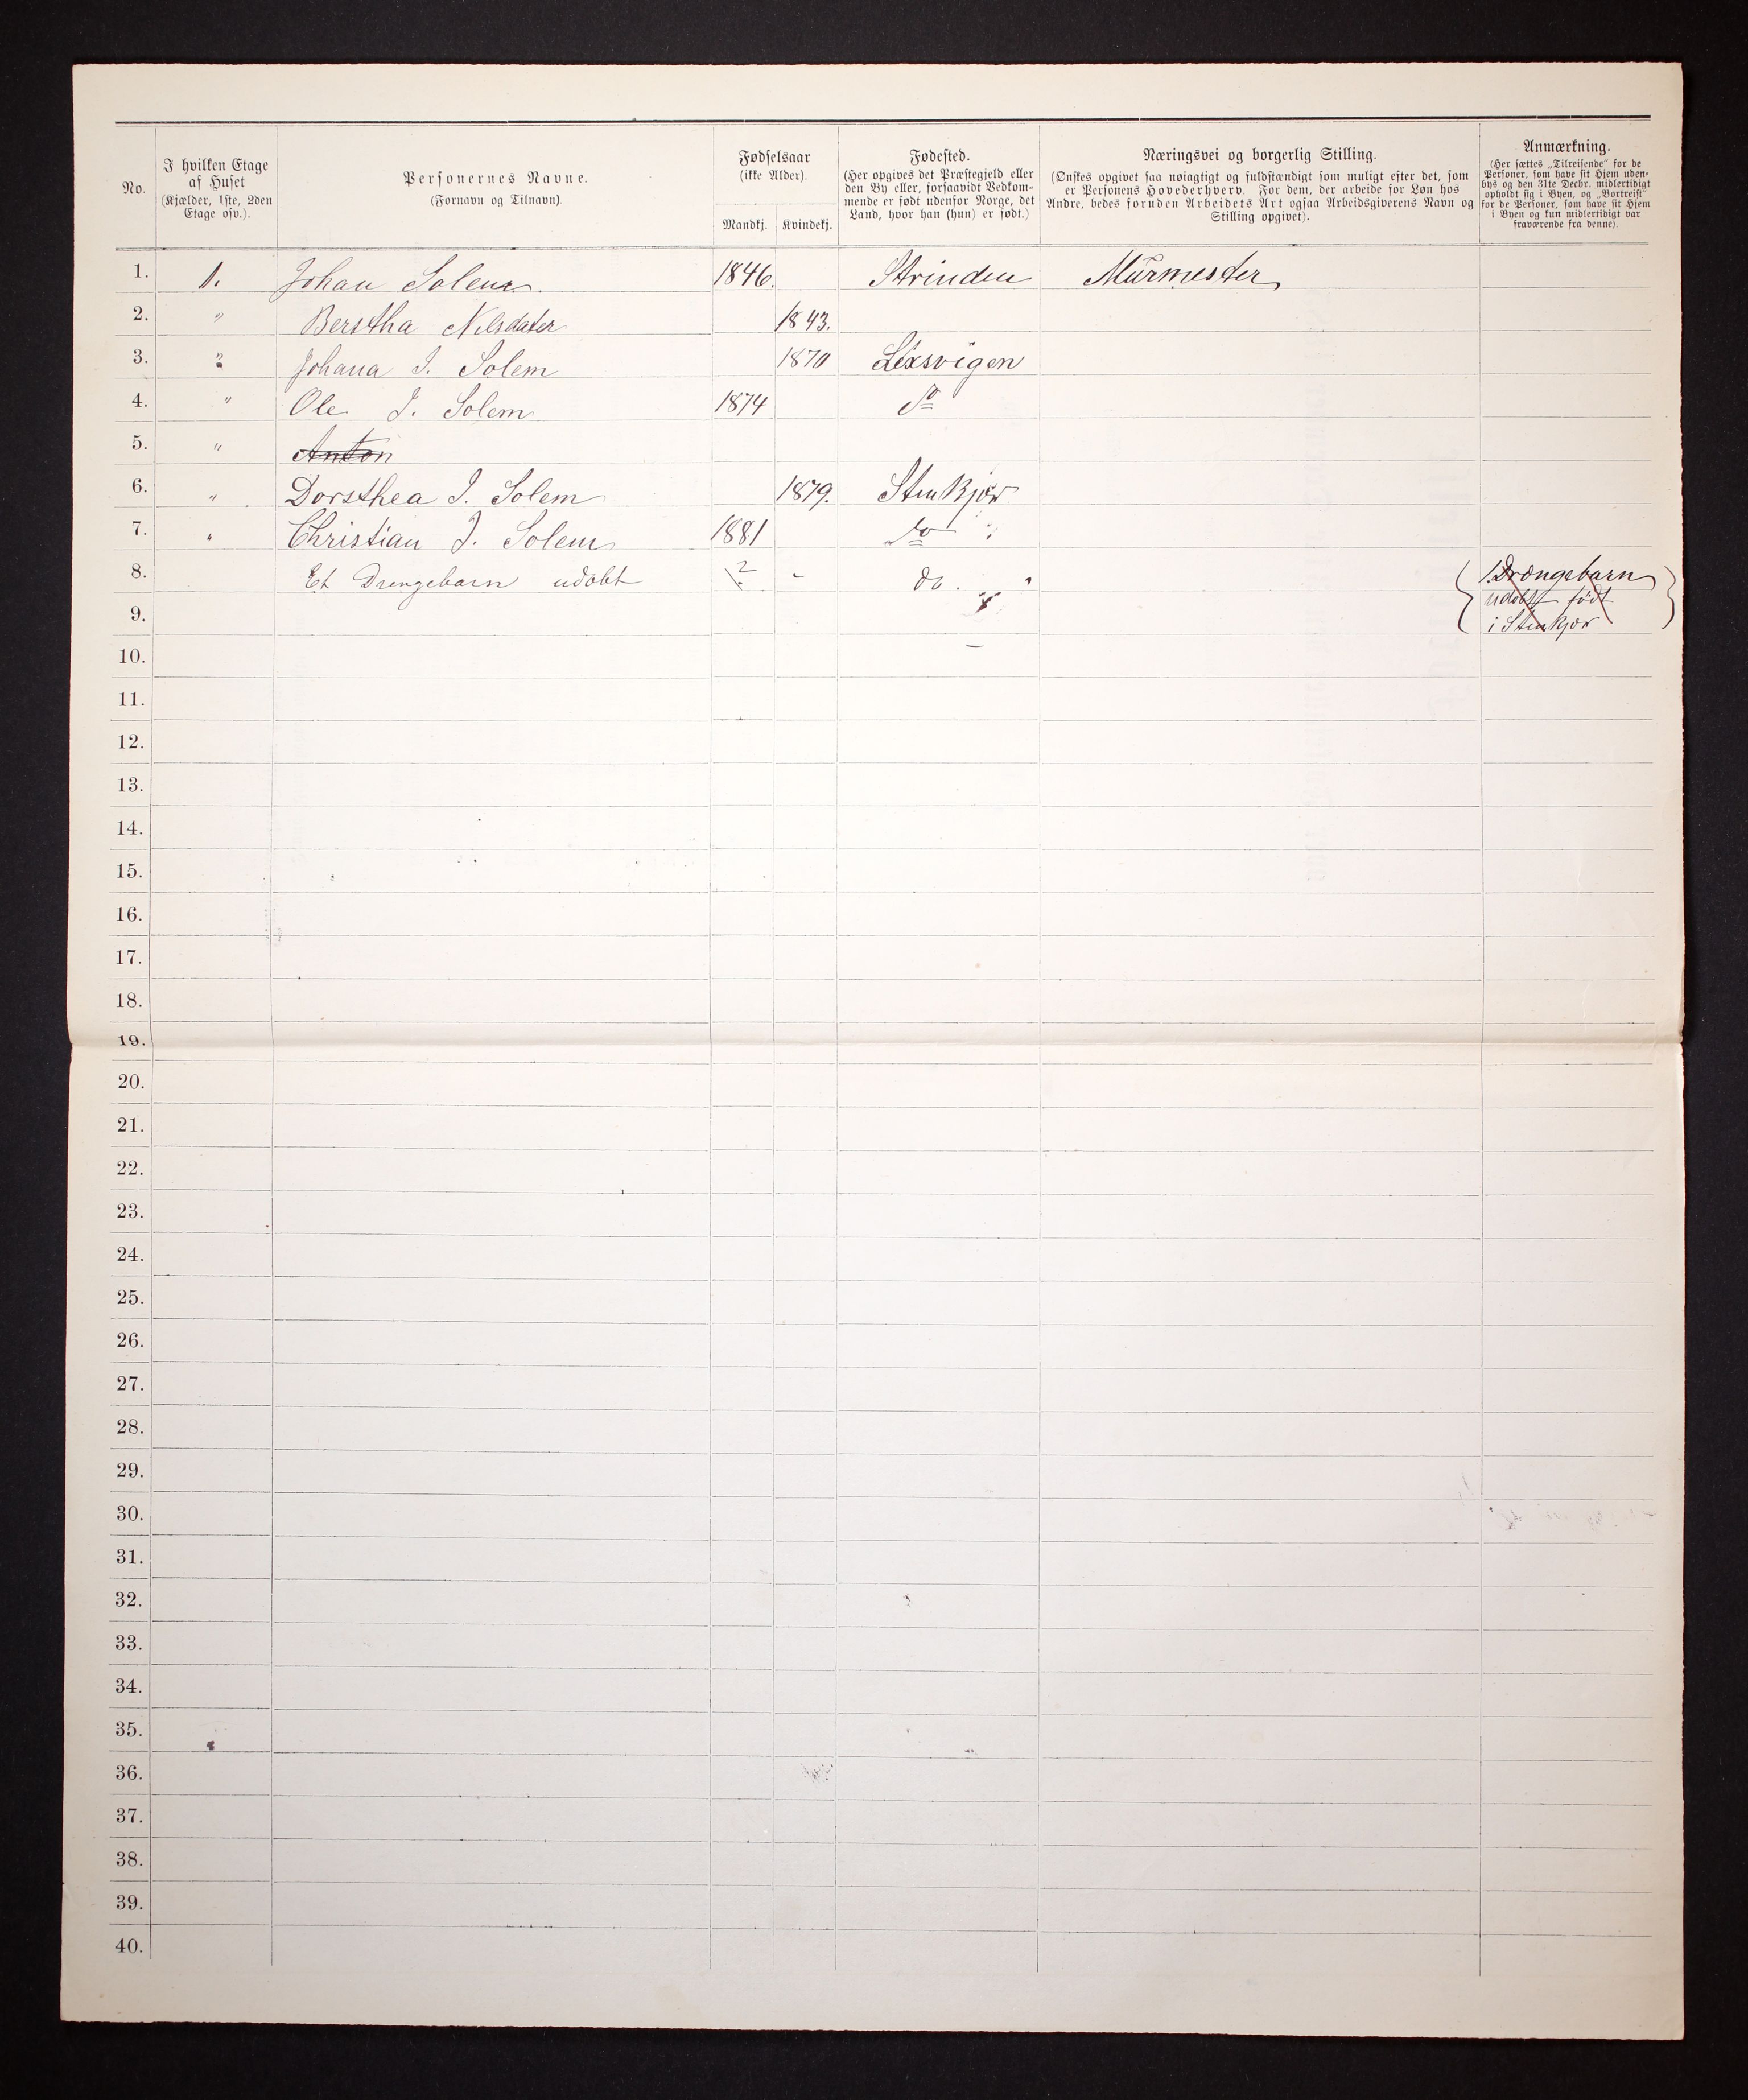 No.
I hvilken Etage
af Huset
(Kjælder, 1ste, 2den
Etage osv.).
Personernes Navne.
(Fornavn og Tilnavn).
Fødselsaar
(ikke Alder).
Mandkj. Kvindekj.
Fødested.
(Her opgives det Præstegjeld eller
den By eller, forsaavidt Vedkom-
mende er født udenfor Norge, det
Land, hvor han (hun) er født.)
Næringsvei og borgerlig Stilling.
(Ønskes opgivet saa nøiagtigt og fuldstændigt som muligt efter det, som
er Personens Hovederhverv. For dem, der arbeide for Løn hos
Andre, bedes foruden Arbeidets Art ogsaa Arbeidsgiverens Navn og
Stilling opgivet).
Anmærkning.
(Her sættes „Tilreisende" for de
Personer, som have sit Hjem uden-
bys og den 31te Decbr. midlertidigt
opholdt sig i Byen, og „Bortreist"
for de Personer, som have sit Hjem
i Byen og kun midlertidigt var
fraværende fra denne).
1. 1. Johan Solem. 1846. Strinden Murmester
2. " Berstha Nilsdater 1843.
3. " Johana J. Solem 1870 Lexsvigen
4. " Ole J. Solem 1874 do
5. " Anton
6. " Dorsthea J. Solem 1879. Stenkjær
7. " Christian J. Solem 1881 do
8. Et Drengebarn udöbt ? - do. 1 Drængebarn
udöbt födt
9. i Stenkjær
10.
11.
12.
13.
14.
15.
16.
17.
18.
19.
20.
21.
22.
23.
24.
25.
26.
27.
28.
29.
30.
31.
32.
33.
34.
35.
36.
37.
38.
39.
40.